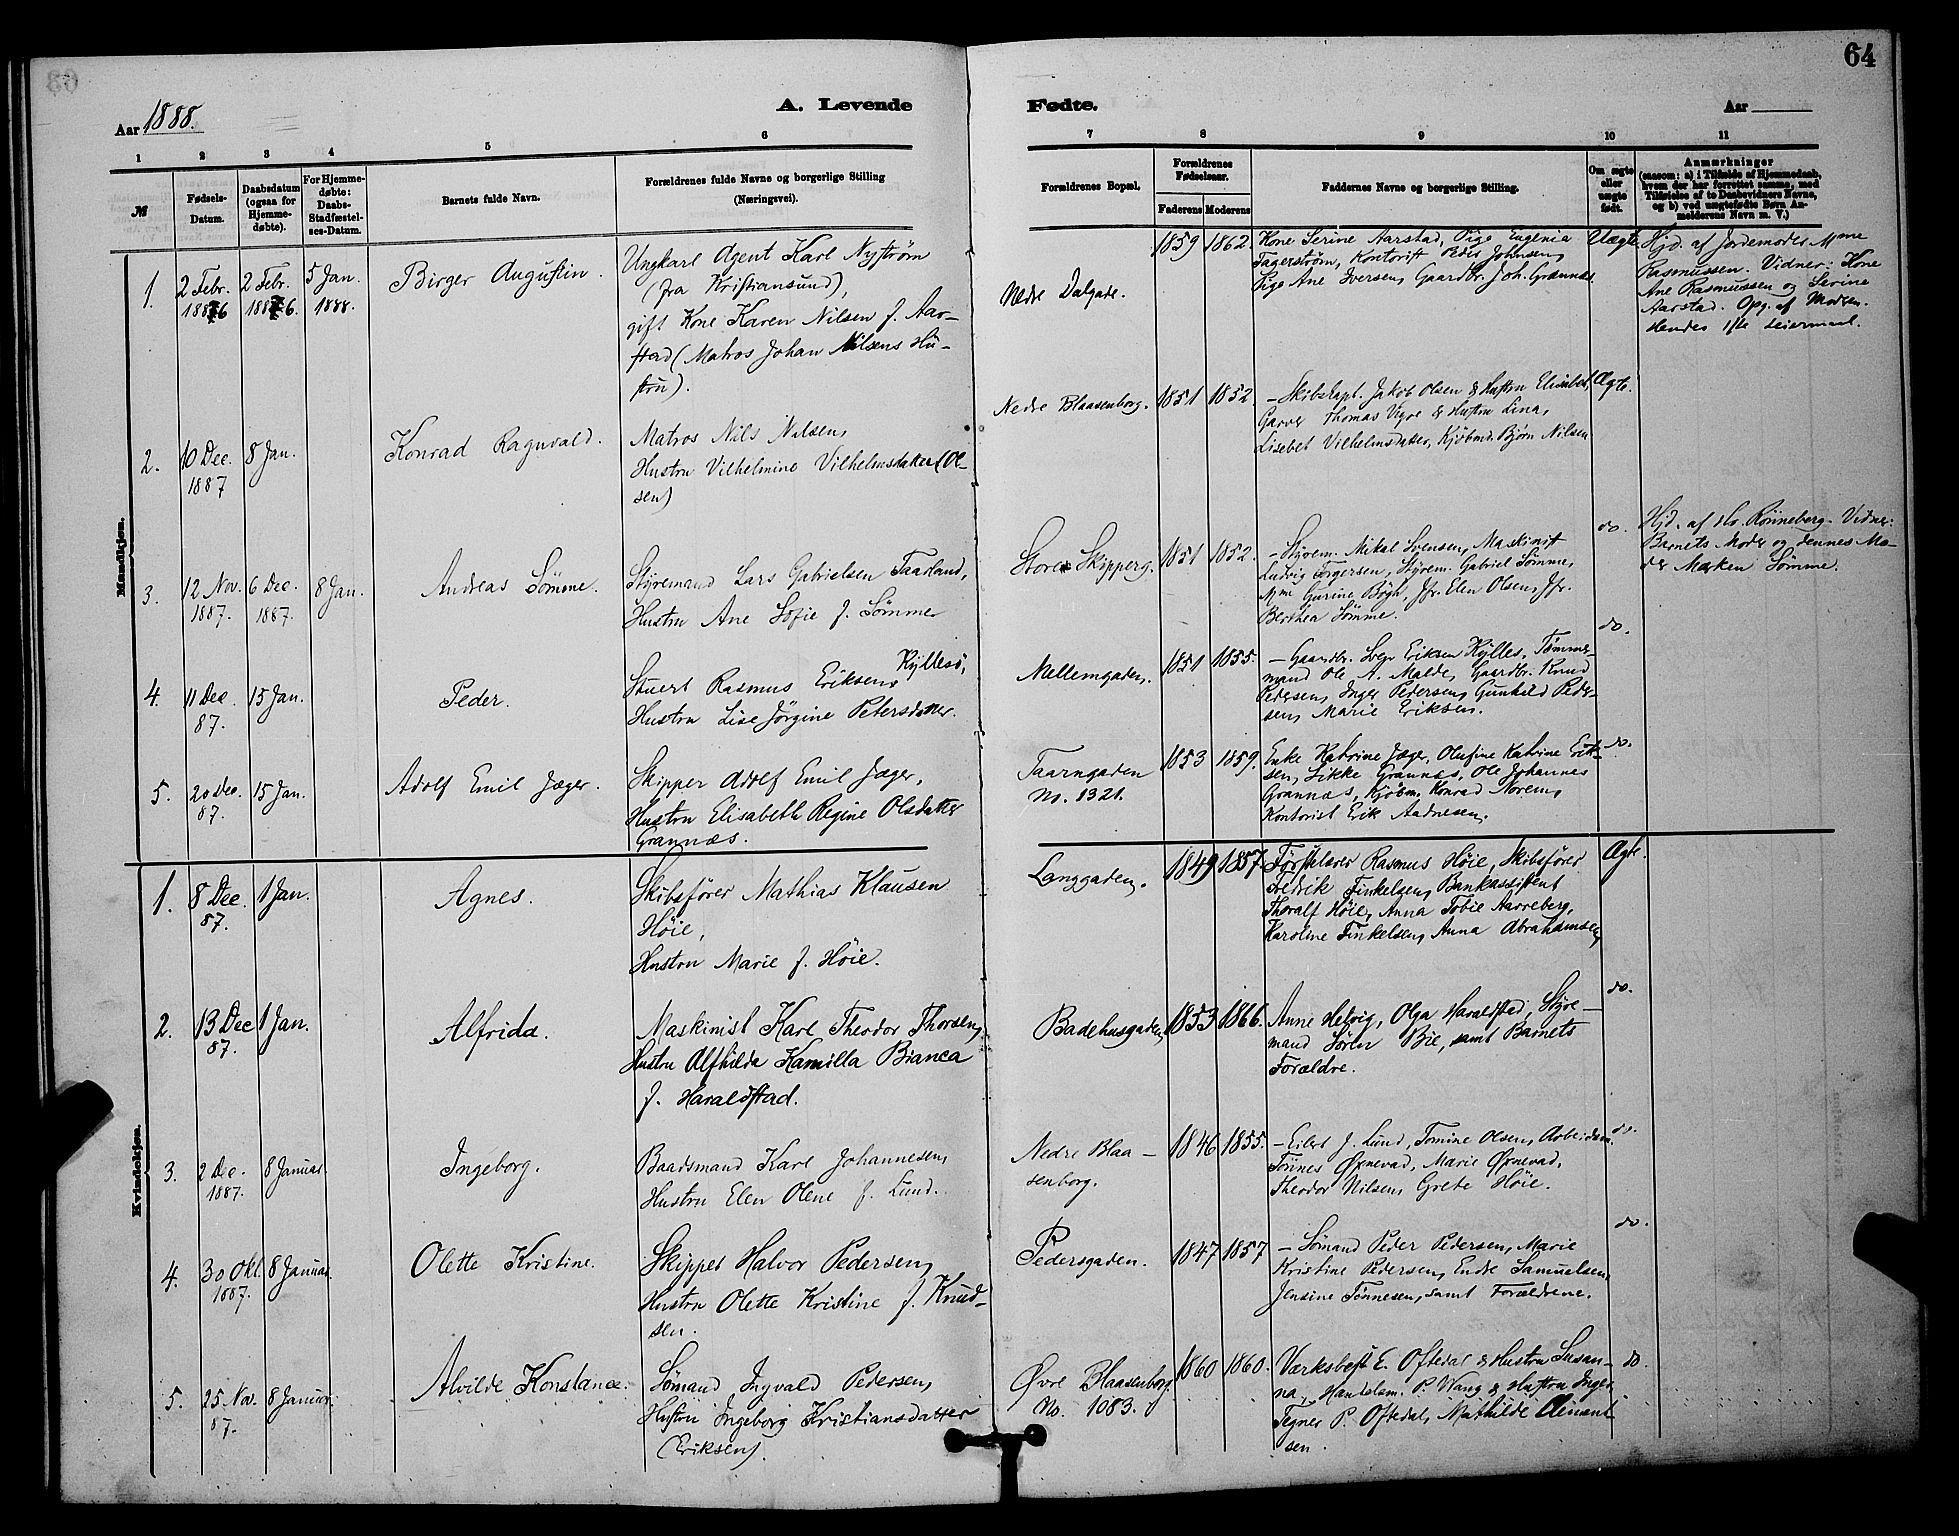 64
Aar 1888.
A. Levende
Fødte.
Aar
1 2 3 4 5 6 7 8 9 10 11
№
Fødsels-
Datum.
Daabsdatum
(ogsaa for
Hjemme-
døbte).
For Hjemme-
døbte:
Daabs-
Stadfæstel-
ses-Datum.
Barnets fulde Navn.
Forældrenes fulde Navne og borgerlige Stilling
(Næringsvei).
Forældrenes Bopæl.
Forældrenes
Fødselsaar.
Faderens
Moderens
Faddernes Navne og borgerlige Stilling.
Om ægte
eller
uægte
født.
Anmærkninger
(saasom: a) i Tilfælde af Hjemmedaab,
hvem der har forrettet samme, med
Tilføielse af to Daabsvidners Navne,
og b) ved uægtefødte Børn An-
melderens Navn m. V.)
Mandkjøn.
1.
2 Febr.
1886
2 Febr.
1886.
5 Jan.
1888.
Birger Augustin.
Ungkarl Agent Karl Nyström
(fra Kristiansund),
gift Kone Karen Nilsen f. Aar-
stad (Matros Johan Nilsens Hu-
stru).
Nedre Dalgade.
1859 1862.
Kone Serine Aarstad, Pige Eugenia
Fagerström, Kontorist Peder Johnsen,
Pige Ane Iversen, Gaardbr. Joh. Grannæs
Uægte
Hjd. af Jordemoder Mme
Rasmussen. Vidner: Kone
Ane Rasmussen og Serine
Aarstad. Opg. af Moderen.
Hendes 1ste Leiermaal.
2.
10 Dec.
1887
8 Jan.
Konrad Ragnvald.
Matros Nils Nilsen,
Hustru Vilhelmine Vilhelmsdatter (Ol-
sen)
Nedre Blaasenborg.
1851 1852.
- Skibskapt. Jakob Olsen & Hustru Elisabet,
Garver Thomas Vigre & Hustru Lina,
Lisebet Vilhelmsdatter, Kjöbmd. Björn Nilsen
Ægte.
3.
12 Nov.
1887.
6 Dec.
1887.
8 Jan.
Andreas Sömme.
Styremand Lars Gabrielsen Taarland,
Hustru Ane Sofie f. Sömme
Store Skipperg.
1851 1852.
- Styrem. Mikal Svensen, Maskinist
Ludvig Torgersen, Styrem. Gabriel Sömme,
Mme Gurine Bögh, Jfr. Elen Olsen, Jfr.
Berthea Sömme.
do.
Hjd. af Hr. Rönneberg. Vidner:
Barnets Moder og dennes Mo-
der Marken Sömme.
4.
11 Dec.
87.
15 Jan.
Peder.
Stuert Rasmus Eriksen Kyllesö,
Hustru Lise Jörgine Petersdatter.
Mellemgaden.
1851 1855.
- Gaardbr. Sven Eriksen Kylles, Tømmer-
mand Ole A. Malde, Gaardbr. Knud
Pedersen, Inger Pedersen, Gunhild Peder-
sen, Marie Eriksen.
do.
5.
20 Dec.
87.
15 Jan.
Adolf Emil Jæger.
Skipper Adolf Emil Jæger,
Hustru Elisabeth Regine Olsdatter
Grannæs.
Taarngaden
No. 1321.
1853 1859.
Enke Katrine Jæger, Olufine Katrine Erik-
sen, Sikke Grannæs, Ole Johannes
Grannæs, Kjöbm. Konrad Noren,
Kontorist Erik Aadnesen.
do.
Kvindekjøn.
1.
8 Dec.
87.
1 Jan.
Agnes.
Skibsförer Mathias Klausen
Höie,
Hustru Marie f. Höie.
Langgaden.
1849 1857.
Rasmus Höie, Skibsförer
Fredrik Finkelsen, Bankassistent
Thoralf Höie, Anna Tobie Aarreberg,
Karoline Finkelsen, Anna Abrahamsen
Ægte.
2.
13 Dec
87.
1 Jan.
Alfrida.
Maskinist Karl Theodor Thorsen,
Hustru Alfhilda Kamilla Bianca
f. Haraldstad.
Badehusgaden
1853 1866.
Anne Helvig, Olga Haraldstad, Styre-
mand Sören Bie, samt Barnets
Forældre.
do.
3.
2 Dec.
1887.
8 Januar.
Ingeborg.
Baadsmand Karl Johannesen,
Hustru Elen Olene f. Lund.
Nedre Blaa-
senborg.
1846 1855.
- Eilert J. Lund, Tomine Olsen, Arbeidsm.
Tönnes Ørnevad, Marie Ørnevad,
Theodor Nilsen, Grete Höie.
do.
4.
30 Okt.
1887.
8 Januar.
Olette Kristine.
Skipper Halvor Pedersen,
Hustru Olette Kristine f. Knud-
sen.
Pedersgaden.
1847 1857
- Sömand Peder Pedersen, Marie
Kristine Pedersen, Endre Samuelsen,
Jensine Tönnesen, samt Forældrene.
do.
5.
25 Nov.
87.
8 Januar.
Alvilde Konstance.
Sömand Ingvald Pedersen,
Hustru Ingeborg Kristiansdatter
(Eriksen).
Øvre Blaasenborg
No. 1083.
1860 1860.
Værksbest. E. Oftedal & Hustru Susan-
na, Handelsm. P. Wang & Hustru Inger,
Tegner P. Oftedal, Mathilde Clement-
sen.
do.